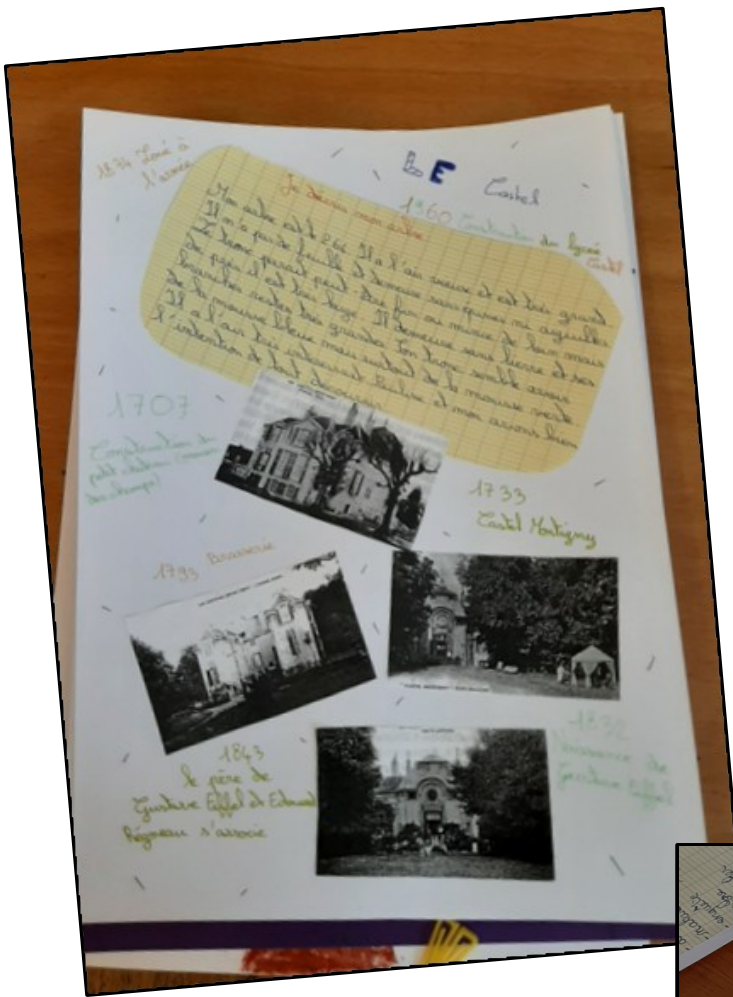 LE Castel
1874 Loué à
l'armée
Je décris mon arbre
1960 Construction du lycée
Castel
Mon arbre est le 264. Il a l'air vieux et est très grand.
Il n'a pas de feuille et demeure sans épines ni aiguilles.
Le tronc parait peut être fin ou mince de loin mais
de près il est très large. Il demeure sans lierre et ses
branches restent très grandes. Son tronc semble avoir
de la mousse bleue mais surtout de la mousse verte.
Il a l'air très intéressant. et moi avions bien
l'intention de tout découvrir.
1707
Construction du
petit château (maison
des champs)
1733
Castel Montigny
1793 Brasserie
1832
Naissance de
Gustave Eiffel
1843
le père de
Gustave Eiffel et Edouard
Régneau s'associe